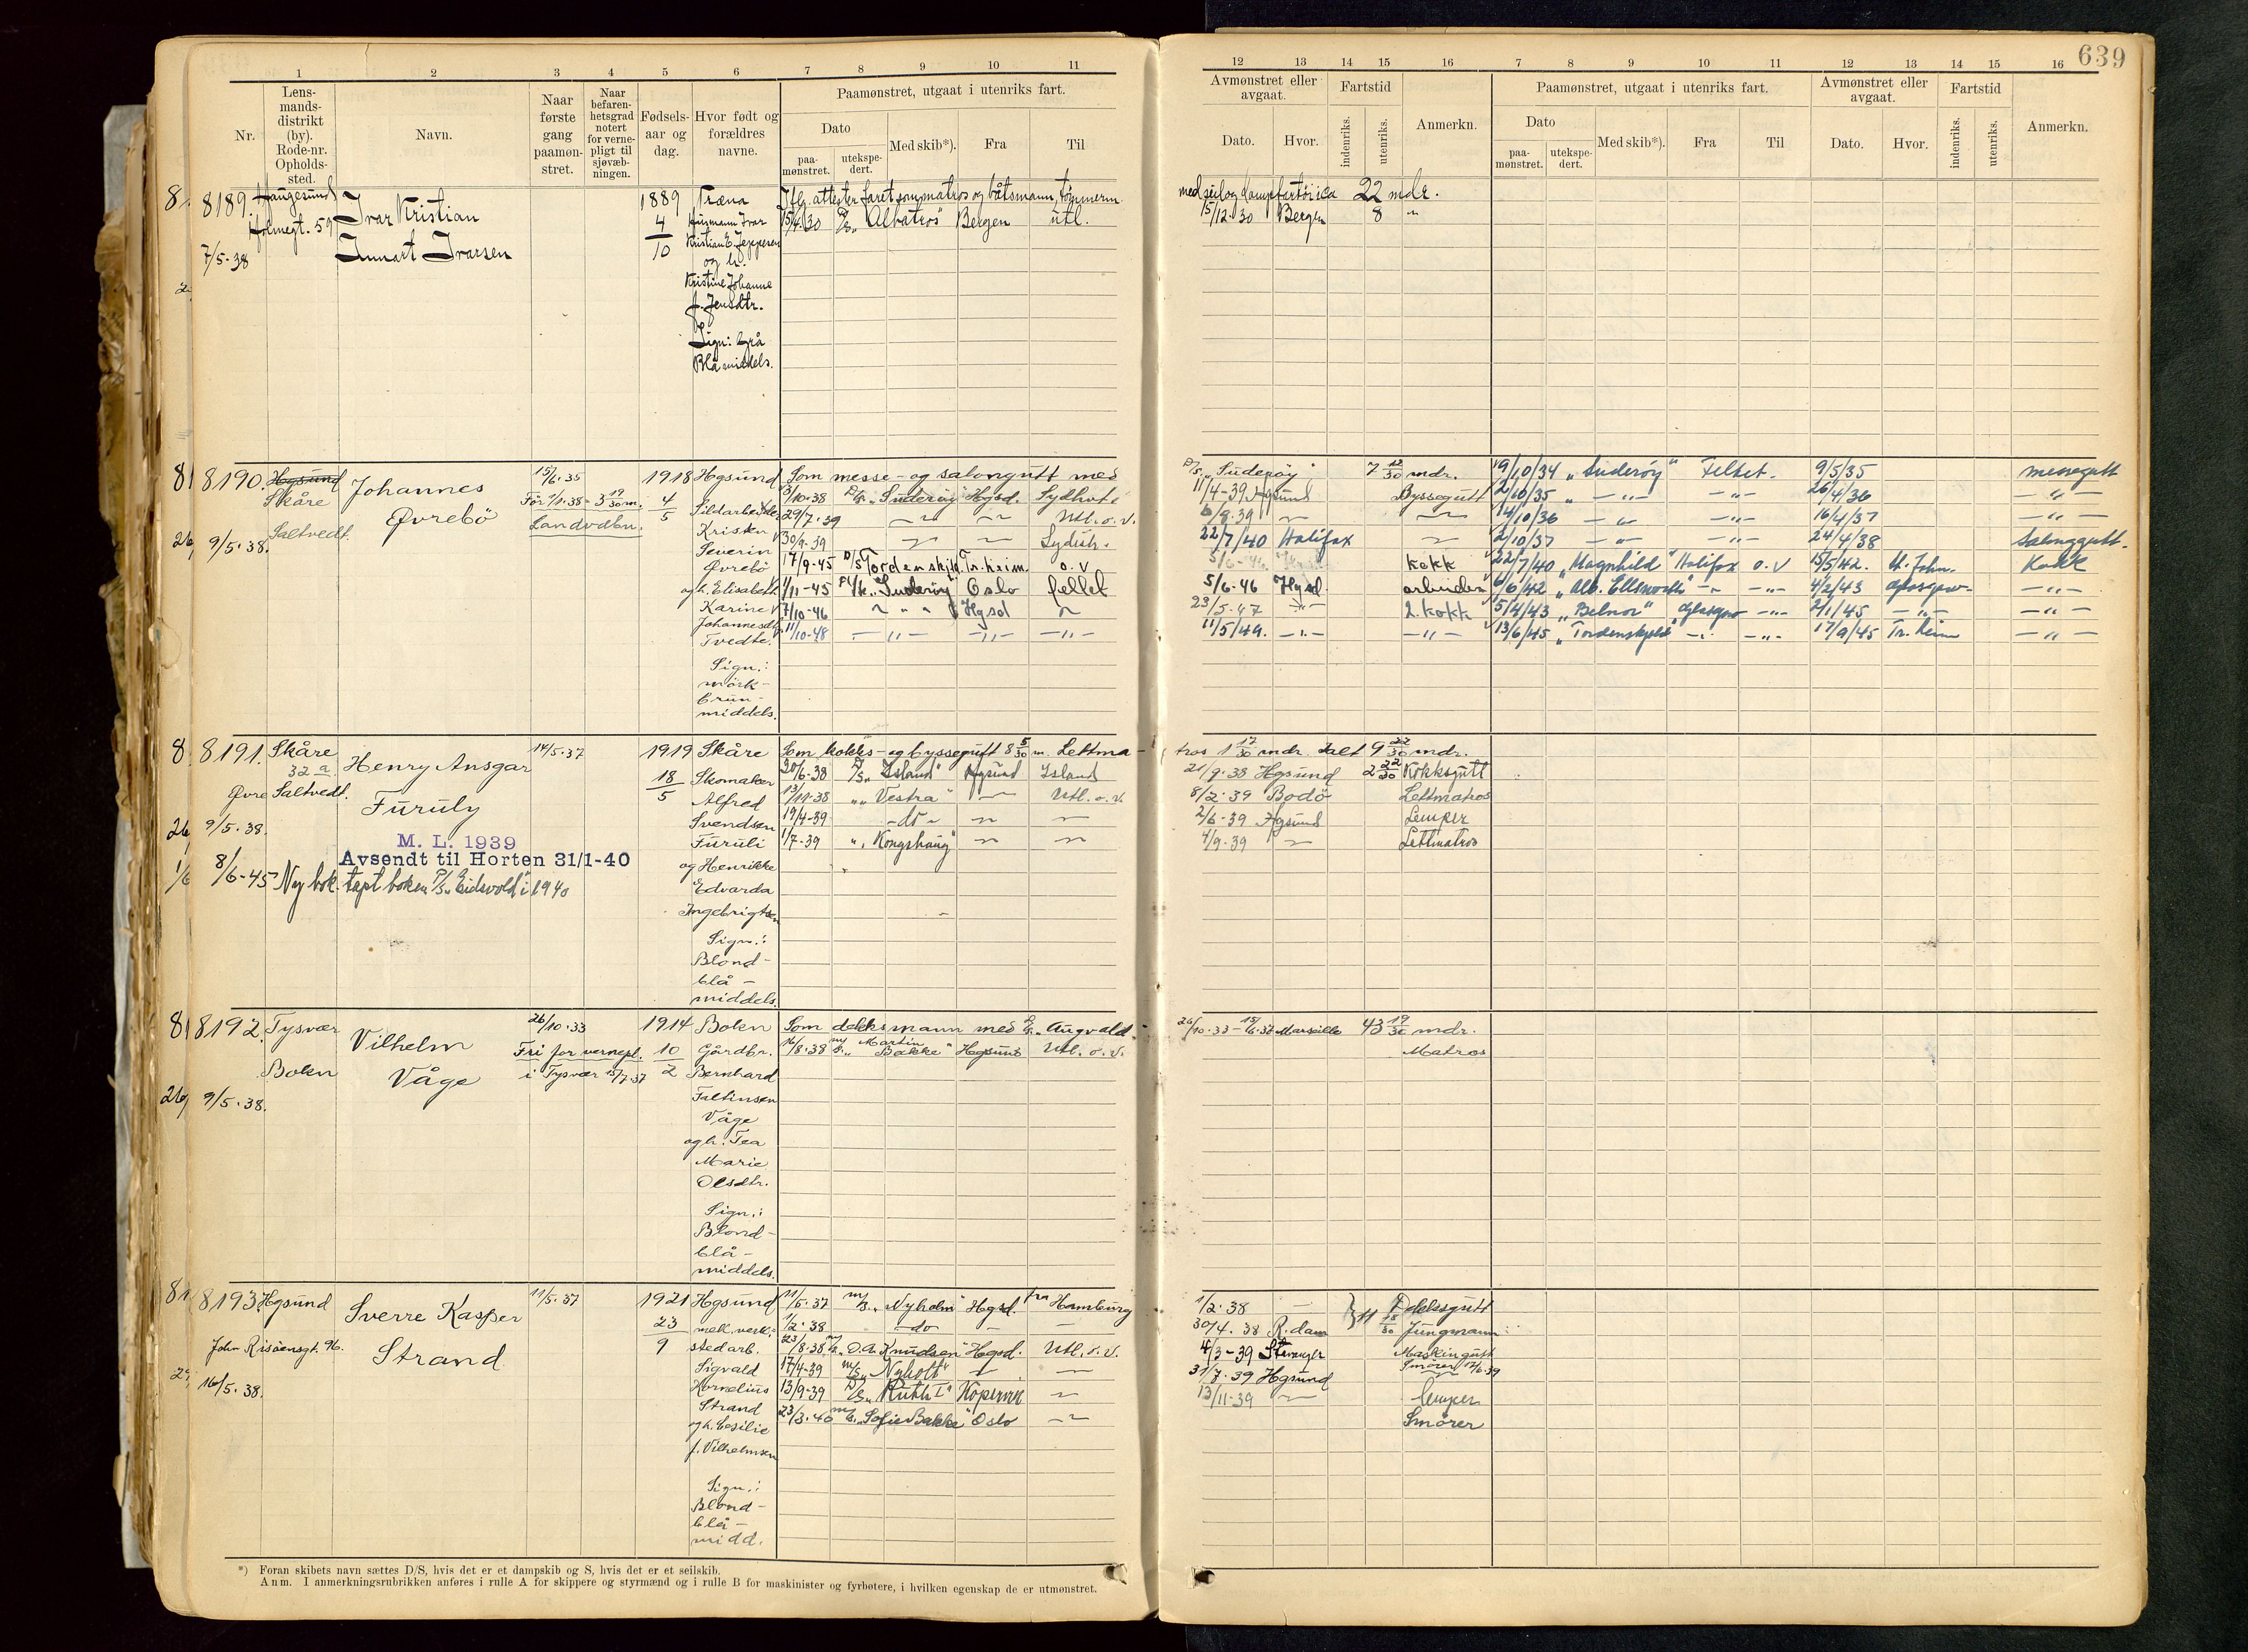 639
1 2 3 4 5 6 7 8 9 10 11
Nr.
Lens-
mands-
distrikt
(by).
Rode-nr.
Opholds-
sted.
Navn.
Naar
første
gang
paamøn-
stret.
Naar
befaren-
hetsgrad
notert
for verne-
pligt til
sjøvæb-
ningen.
Fødsels-
aar og
dag.
Hvor født og
forældres
navne.
Paamønstret, utgaat i utenriks fart.
Dato
paa-
mønstret.
utekspe-
dert.
Med skib*).
Fra
Til
12 13 14 15 16 7 8 9 10 11 12 13 14 15 16
Avmønstret eller
avgaat.
Dato.
Hvor.
Fartstid
indenriks.
utenriks.
Anmerkn.
Paamønstret, utgaat i utenriks fart.
Dato
paa-
mønstret.
utekspe-
dert.
Med skib*).
Fra
Til
Avmønstret eller
avgaat.
Dato.
Hvor.
Fartstid
indenriks.
utenriks.
Anmerkn.
8189. Haugesund
Holmegt. 59
7/5-38
Ivar Kristian
Ivarsen
1889
4
10
Træna
Ivar
Kristian E. Jeppesen
og h.
Kristine Johanne
f. Jensdtr.
Sign: grå
Blå middels.
Ifly. attester faret som matros og båtsmann, tømmerm.
15/4.30 D/S. "Albatros" Bergen utl.
med seil og dampfartøi ca 22 mdr.
15/12.30 Bergen 8 "
8190. Hgsund
Skåre
Saltvedt.
9/5.38.
Johannes
Øvrebö
15/6.35
För 1/1.38 = 3 19/30 m.
Landvdbn.
1918
4
5
Hgsund
Sildarbeider
Kristen
Severin
Øvrebö
og h. Elisabeth
Karine
Johannesdtr.
Tvedte.
Sign.:
mörk-
brun-
middels.
Som messe- og salongutt med
3/10.38 D/S. "Suderöy" Hgsd. Sydhvl.
29/7.39 — " — — " — Utl. o. v.
30/9.39 — — Sydish.
17/9-45 D/S Tordenskjold Tr.heim. o.v
1/11-45 Fl/k. "Suderöy" Oslo feltet
7/10-46 " " " Hgsd "
11/10-48 — " — — " — — " —
D/S. "Suderöy" 7 12/30 mdr.
11/4-39 Hgsund Byssegutt
6/8.39 — —
22/7/40 Halifax —
5/6-46 kokk
5/6-46 Hgsd. arbeider
23/5-47 — " — 2. kokk
11/5/49. — " — — " —
19/10/34 "Suderöy" Feltet. 9/5/35 messegutt
2/10/35 " — " — — " — 26/4/36 — " —
14/10/36 — " — — " — 16/4/37 — " —
2/10/37 — " — — " — 24/4/38 Salonggutt.
22/7/40 "Magnhild" Halifax o.v 15/5/42. St. John. Kokk
6/6/42 "Alb. Ellsworth" — " — — " — 4/2/43 Glasgow — " —
5/4/43 "Belnor" Glasgow — " — 2/1/45 — " — — " —
13/6/45 "Tordenskjold" — " — — " — 17/9/45 Tr. heim — " —
8191. Skåre
32 a
Øvre Saltvedt.
9/5.38.
Henry Ansgar
Furuly
M. L. 1939
Avsendt til Horten 31/1-40
8/6-45 Ny bok. tapt boken D/S. "Eidsvold" i 1940
14/5.37
1919
18
5
Skåre
Skomaker
Alfred
Svendsen
Furuli
og Henrikke
Edvarda
Ingebrigtsen
Sign.:
Blond-
blå-
middels.
Som kokks- og byssegutt 8 5/30 m. Lettma-
30/6-38 D/S. "Island" Hgsund Island
13/11-38 " "Vestra" — Utl. o. v.
19/4-39 — do — — " — —
1/7-39 " "Kongshaug" — " — — " —
tros 1 17/30 mdr. Ialt 9 22/30 mdr.
21/9.38 Hgsund 2 22/30 Kokksgutt
8/2.39 Bodö Lettmatros
2/6.39 Hgsund Lemper
4/9.39 — Lettmatros
8192. Tysvær
Boken
9/5.38.
Vilhelm
Våge
26/10.33
Fri for vernepl.
i Tysvær 15/7.37
1914
10
2
Boken
Gårdbr.
Bernhard
Faltinsen
Våge
og h. Tea
Marie
Olsdtr.
Sign.:
Blond-
blå-
middels.
Som dekksmann med D/S. "Augvald
16/8.38 M/S. "Martin
Bakke" Hgsund Utl. o. v.
26/10.33 - 15/6.37 Marseille 43 19/30 mdr.
Matros
8193. Hgsund
John Risöensgt. 96.
16/5.38.
Sverre Kasper
Strand
11/5.37
1921
23
9
Hgsund
mek. verk.=
stedarb.
Sigvald
Kornelius
Strand
og h. Cesilie
f. Vilhelmsen
Sign.:
Blond-
blå-
midd.
11/5.37 M/S. "Nyholm" Hgsd. fra Hamburg
1/2.38 — do — — —
23/8.38 M/S. "O. A. Knudsen" Hgsd. Utl. o. v.
17/4-39 M/S. "Nyholt" — —
13/9-39 D/S. "Ruth I" Kopervik —
23/3.40 M/S. "Sofie Bakke" Oslo — " —
1/2.38 — Dekksgutt
30/4.38 R.dam 11 18/30 Jungmann
4/3-39 Stavanger Maskingutt
Smörer 12/6.39
31/7.39 Hgsund
13/11-39 — Lemper
Smörer
*) Foran skibets navn sættes D/S, hvis det er et dampskib og S, hvis det er et seilskib.
Anm. I anmerkningsrubrikken anføres i rulle A for skippere og styrmænd og i rulle B for maskinister og fyrbøtere, i hvilken egenskap de er utmønstret.